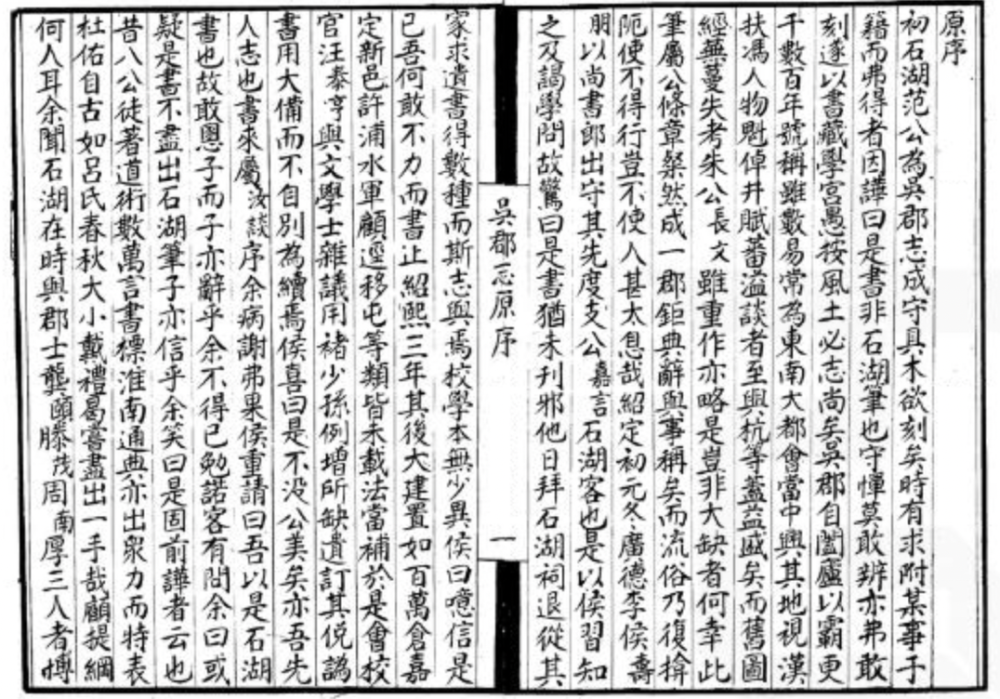 原序
初石湖范公為吳郡志成守具木欲刻矣時有求附某事于
籍而弗得者因譁曰是書非石湖筆也守憚莫敢辨亦弗敢
刻遂以書藏學宮愚按風土必志尚矣吳郡自闔廬以霸更
千數百年號稱雖數易常為東南大都會當中興其地視漢
扶馮人物魁倬井賦蕃溢談者至與杭等蓋益盛矣而舊圖
經蕪蔓失考朱公長文雖重作亦略是豈非大缺者何幸此
筆屬公條章粲然成一郡鉅典辭與事稱矣而流俗乃復揜
阨使不得行豈不使人甚太息哉紹定初元冬廣德李侯壽
朋以尚書郎出守其先度支公嘉言石湖客也是以侯習知
之及謁學問故驚曰是書猶未刊邪他日拜石湖祠退從其
吳郡志原序
一
家求遺書得數種而斯志與焉校學本無少異侯曰噫信是
已吾何敢不力而書止紹熙三年其後大建置如百萬倉嘉
定新邑許浦水軍顧逕移屯等類皆未載法當補於是會校
官汪泰亨與文學士雜議用褚少孫例增所缺遺訂其侻譌
書用大備而不自別為續焉侯喜曰是不没公美矣亦吾先
人志也書來屬汝談序余病謝弗果侯重請曰吾以是石湖
書也故敢恩子而子亦辭乎余不得已勉諾客有問余曰或
疑是書不盡出石湖筆子亦信乎余笑曰是固前譁者云也
昔八公徒著道術數萬言書標淮南通典亦出衆力而特表
杜佑自古如呂氏春秋大小戴禮曷嘗盡出一手哉顧提綱
何人耳余聞石湖在時與郡士龔頤滕茂周南厚三人者博